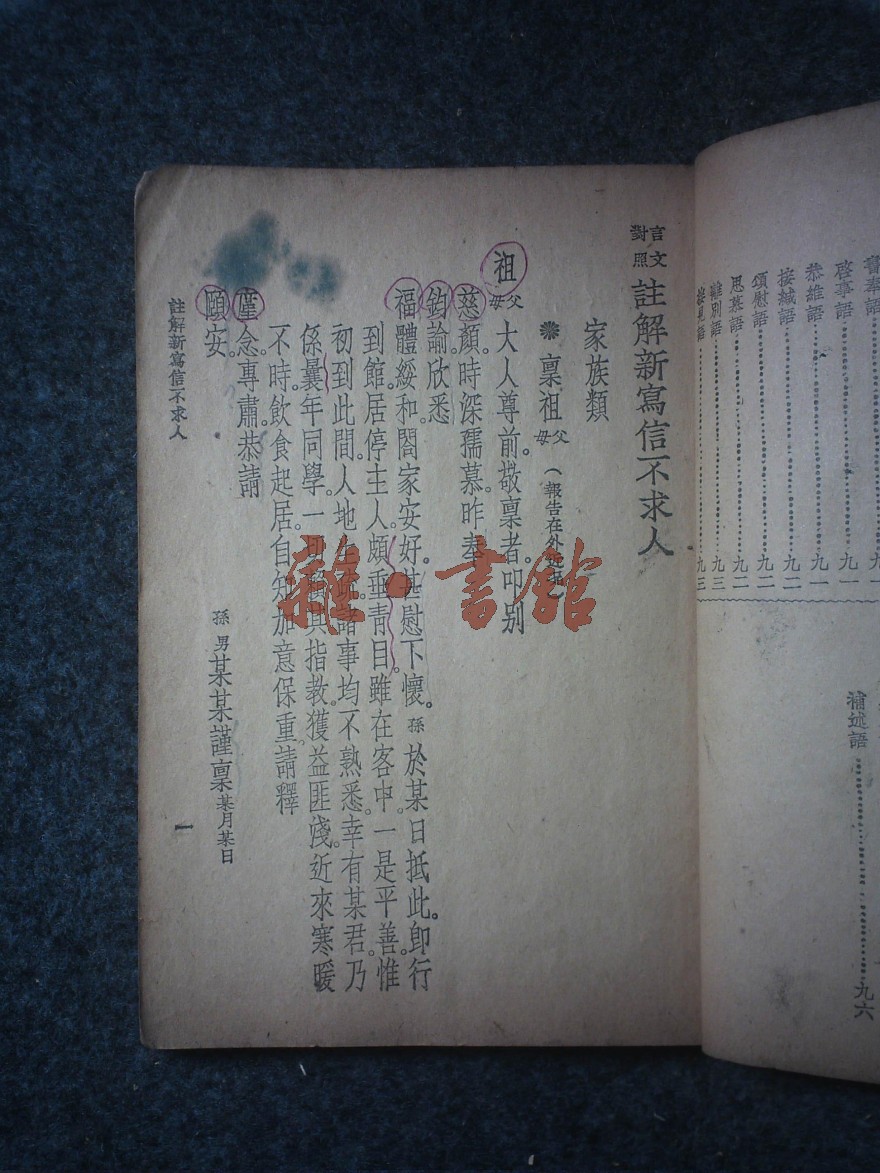 啓事語……九一
恭維語……九一
接緘語……九二
頌慰語……九二
思慕語……九二
離別語……九三
接見語……九三
補述語……九六
言文對照 註解新寫信不求人
家族類
❋ 稟祖父母 (報告在外
祖父母大人尊前。敬稟者。叩别
慈顏。時深孺慕。昨奉
鈞諭。欣悉
福體綏和。閤家安好。甚慰下懷。孫於某日抵此。卽行
到館。居停主人。頗垂青目。雖在客中。一是平善。惟
初到此間。人地生疏。諸事均不熟悉。幸有某君。乃
係曩年同學。一切賴其指教。獲益匪淺。近來寒暖
不時。飲食起居。自知加意保重。請釋
廑念。專肅。恭請
頤安。
孫男某某謹稟 某月某日
註解新寫信不求人
一
雜·書館